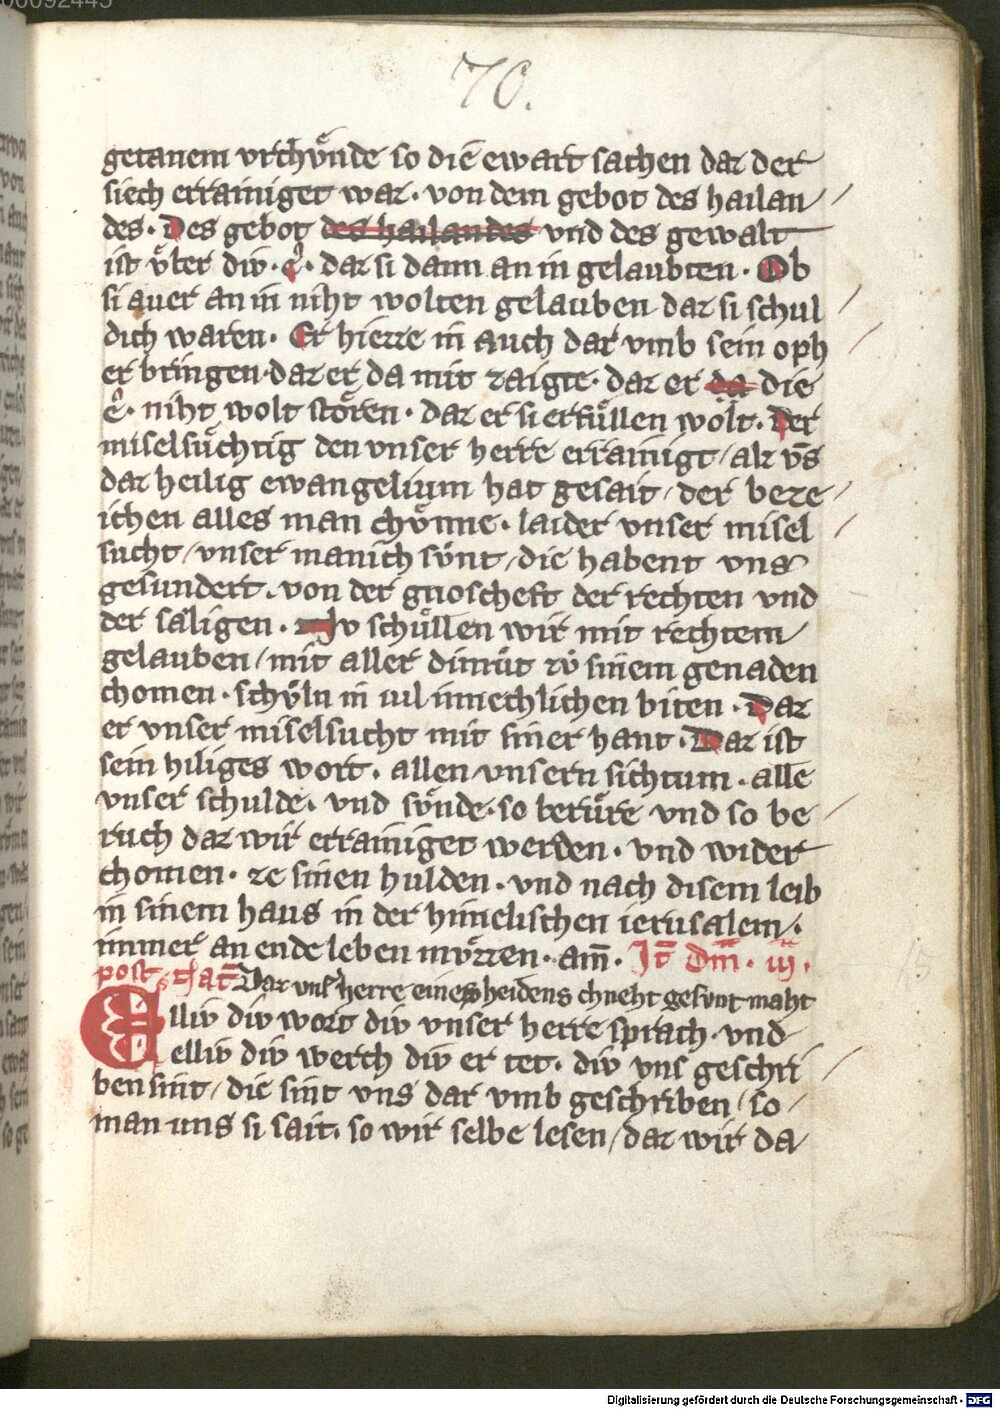 70.
getanem vrchv̈nde so die ewart sachen daz der
siech errainiget war· von dem gebot des hailan/
des· Des gebot des hailandes vnd des gewalt
ist v̈ber div· ê· daz si dann an in gelaubten· Ob
si auer an in niht wolten gelauben daz si schul/
dich waren· Er hiezze in auch dar vmb sein oph/
er bringen· daz er da mit zaigte· daz er da die
ê· niht wolt stören· daz er si erfüllen wölt· Der
miselsüchtig den vnser herre erräinigt/ alz vns̄
daz heilig ewangelium hat gesait/ der beze/
ichen alles man chönne· laider vnser misel/
sucht/ vnser manich sünt/ die habent vns
gesundert· von der gnoscheft der rechten vnd
der säligen· Nv schüllen wir mit rechtem/
gelauben/ mit aller dimüt zů sinem genaden
chomen· schv̈ln in vil innechlichen biten· Daz
er vnser miselsucht mit siner hant· Daz ist
sein hiliges wort· allen vnsern sichtum· alle
vnser schulde· vnd sönde· so berüre vnd so be/
ruch daz wir erräiniget werden· vnd wider
chomen· ze sinen hulden· vnd nach disem leib
in sinem haus in der himelischen ierusalem/·
immer an ende leben mv̈zzen· am̄· It̄ Dm̄· iij·
post· octāt Daz vnsˀ herre eines heidens chneht gesvnt maht
Elliv div wort div vnser herre sprach· vnd
elliv div werch div er tet· div vns geschri/
ben sint/ die sint vns dar vmb geschriben/ so/
man uns si sait· so wir selbe lesen/ daz wir da/
Digitalisierung gefördert durch die Deutsche Forschungsgemeinschaft - DFG